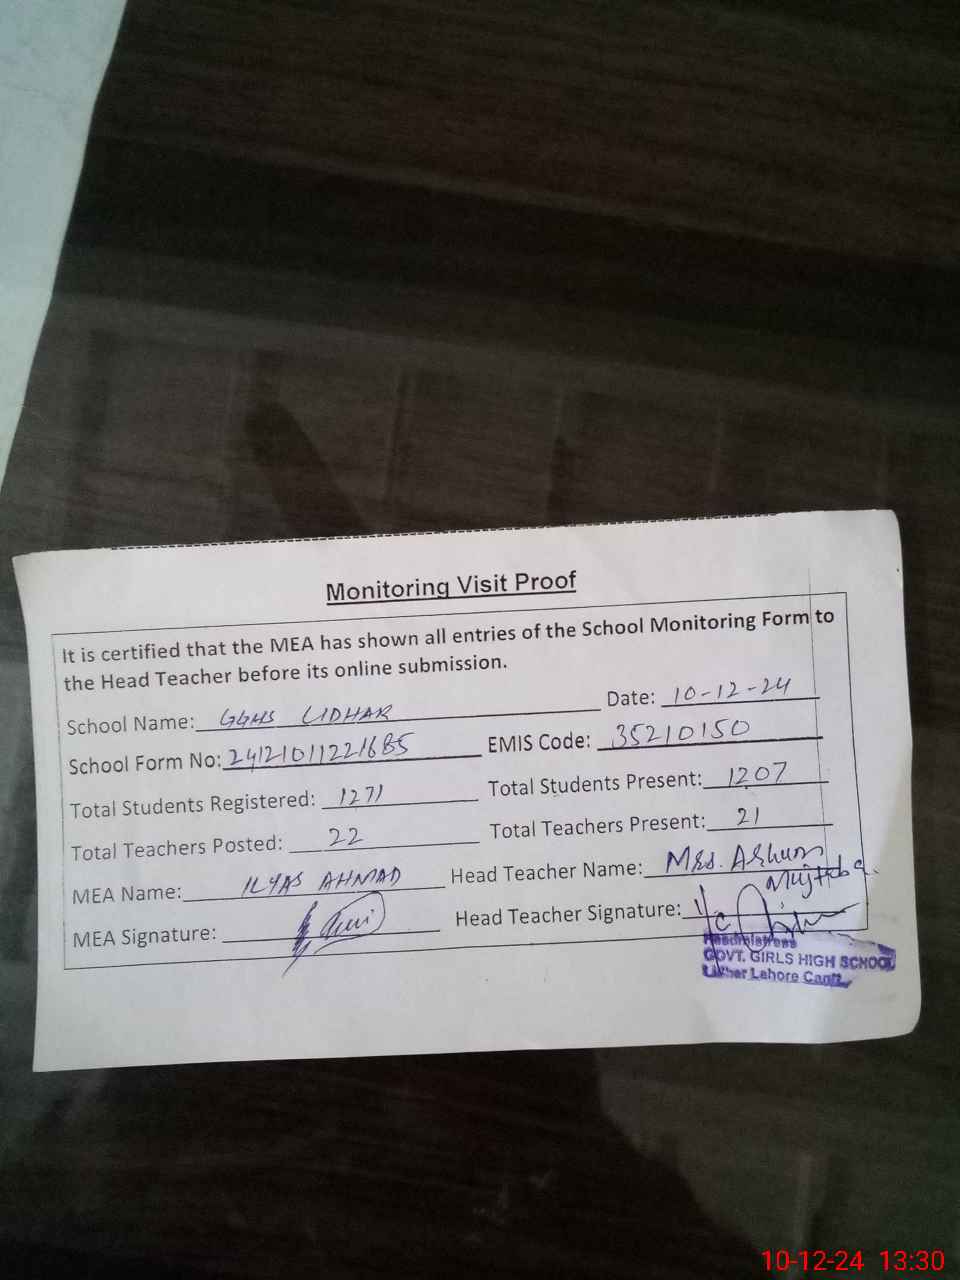 Monitoring Visit Proof
It is certified that the MEA has shown all entries of the School Monitoring Form to
the Head Teacher before its online submission.
School Name: GGHS LIDHAR Date: 10-12-24
School Form No: 24121011221685 EMIS Code: 35210150
Total Students Registered: 1271 Total Students Present: 1207
Total Teachers Posted: 22 Total Teachers Present: 21
MEA Name: ILYAS AHMAD Head Teacher Name: Mrs. Mujtaba
MEA Signature: Head Teacher Signature:
Headmistress
GOVT. GIRLS HIGH SCHOOL
Lahore Cantt.
10-12-24 13:30